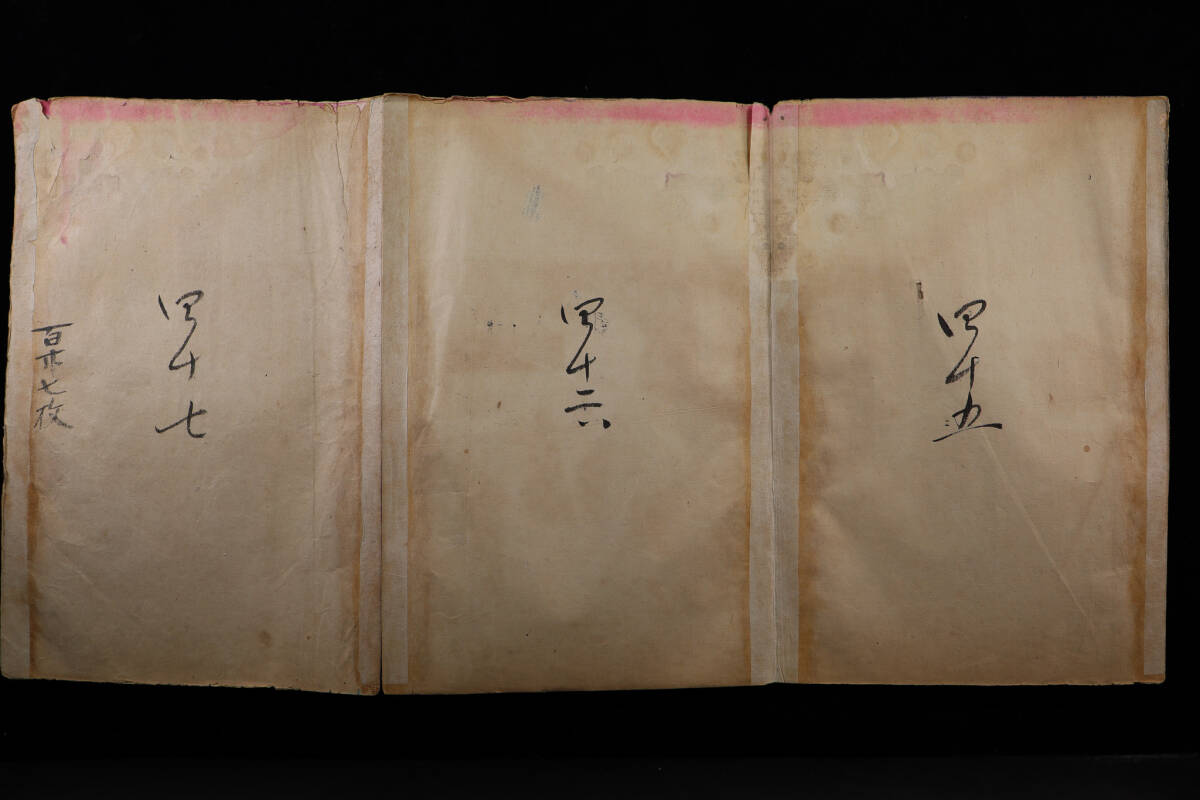 四十五
四十六
四十七
百 七枚